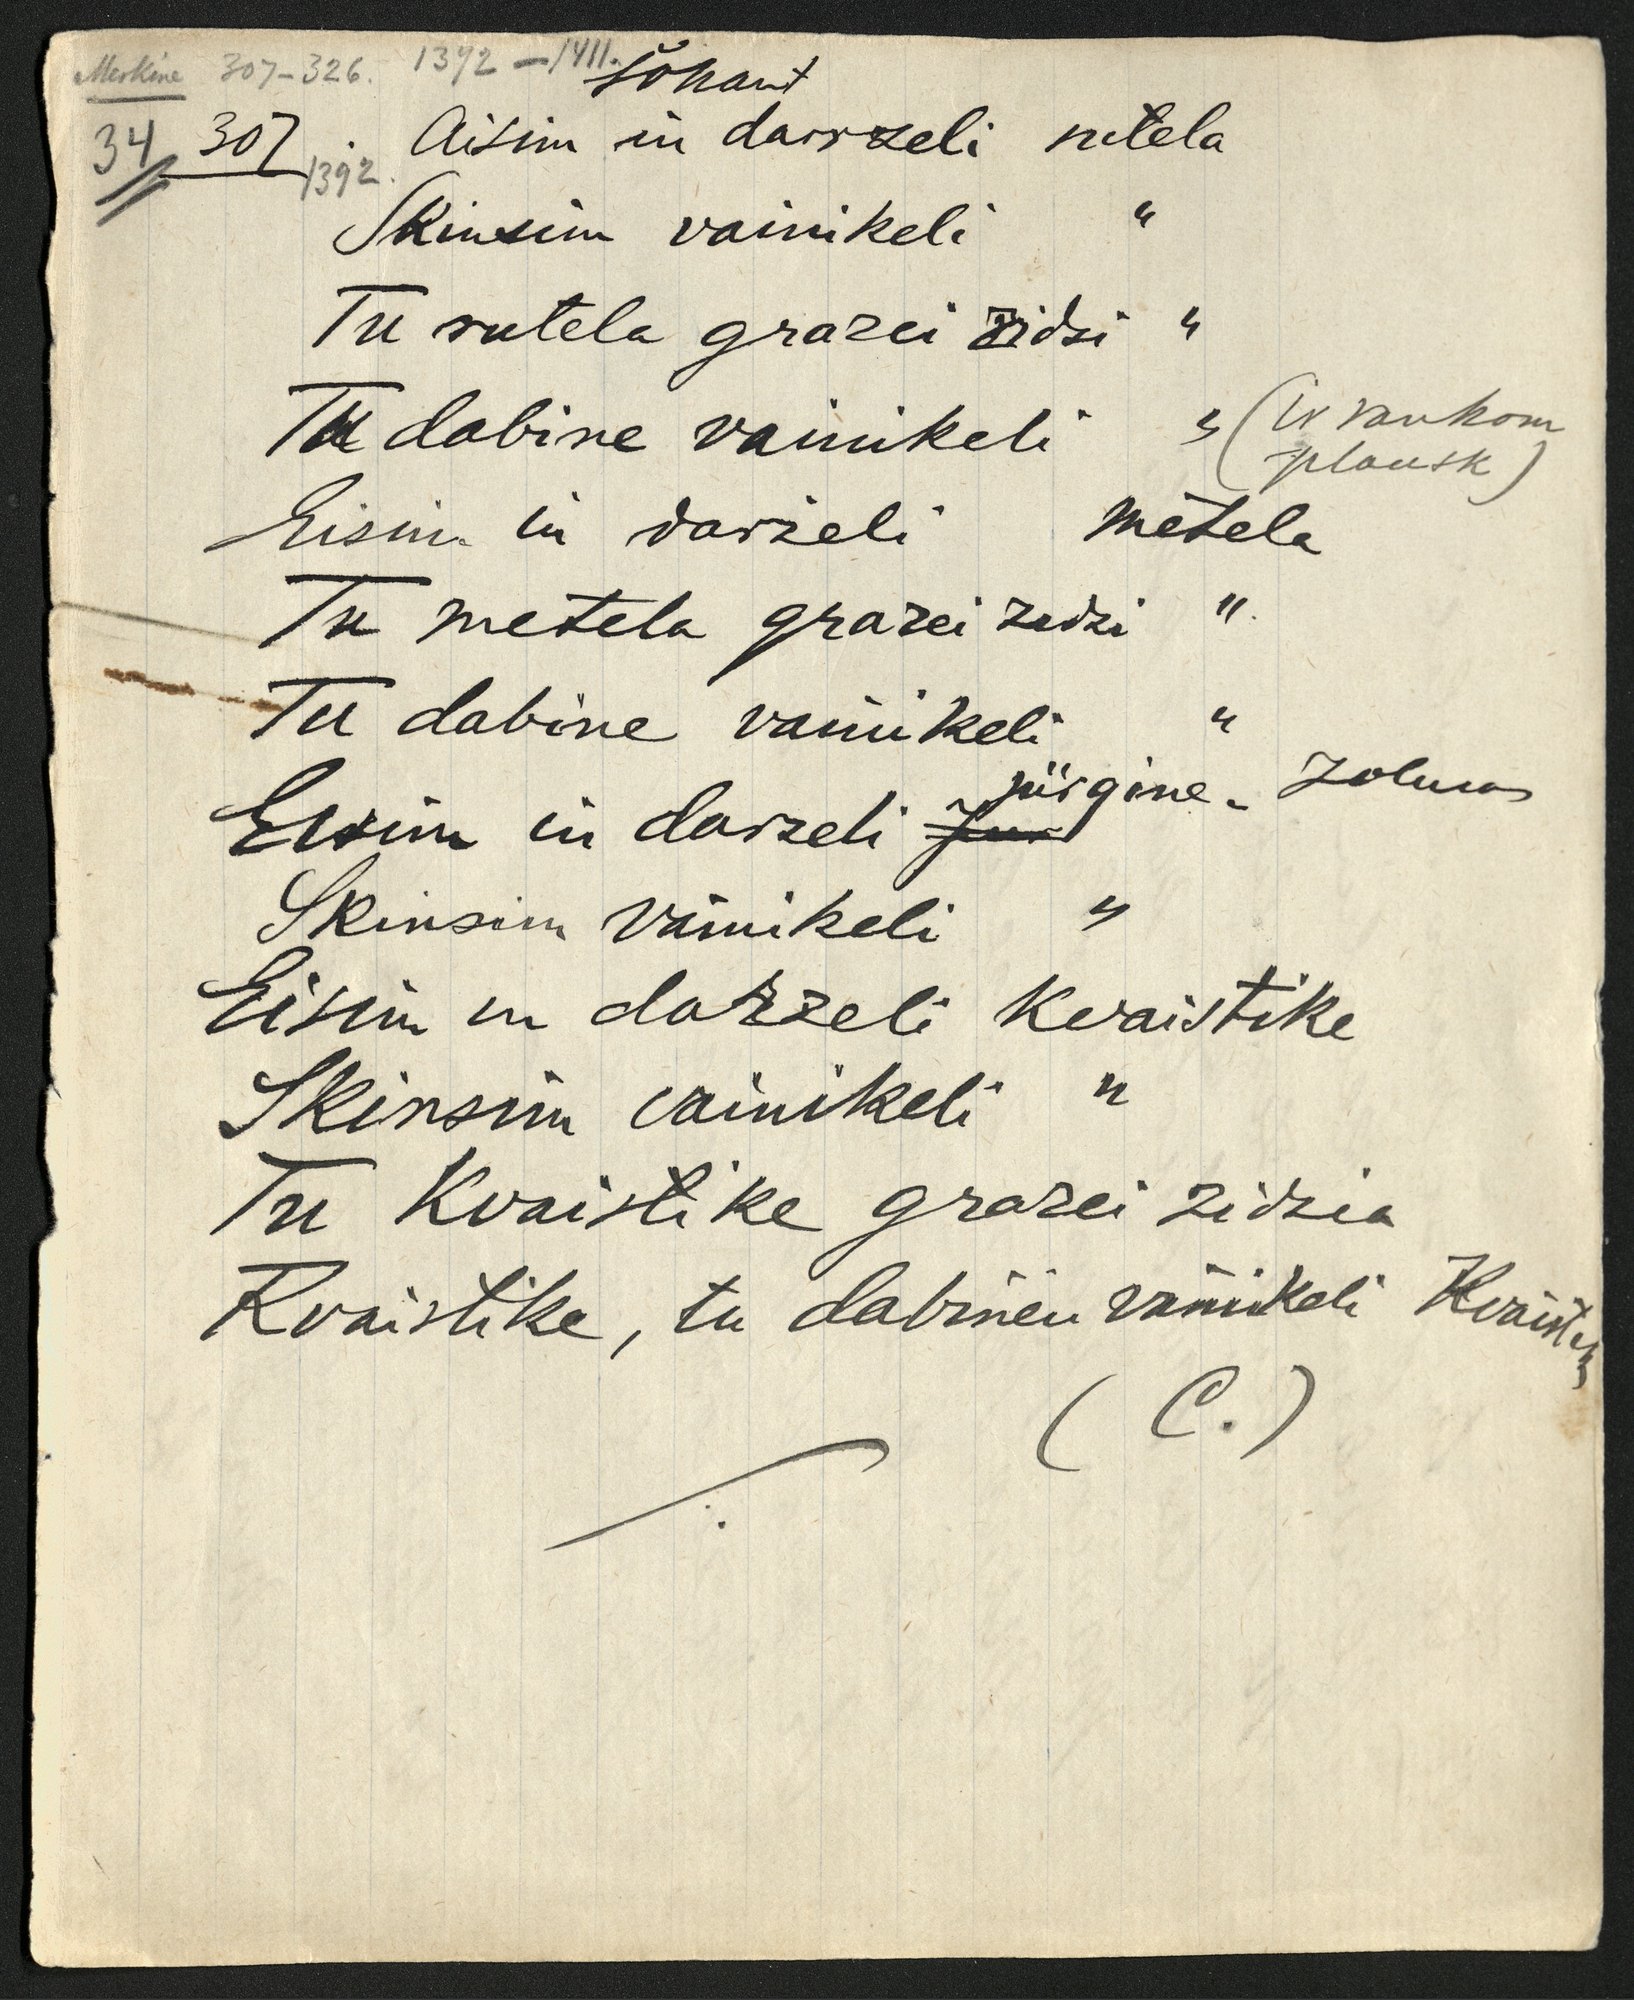 Merkine 307–326. 1392 – 1411.
šōkant
34 307. Aisim in darzeli rutela
1392.
Skinsim vainikeli "
Tu rutela grazei zidzi "
Tu dabine vainikeli " (ir rankom
plausk)
Eisim in darželi mėtela
Tu metela grazei zidzi "
Tu dabine vainikeli "
pūrgine
Eisim in darzeli
Skinsim vainikeli "
Eisim in darzeli Kvaistike
Skinsim vainikeli "
Tu Kvaistike grazei zidzia
Kvaistike, tu dabinėi vainikeli
(C.)